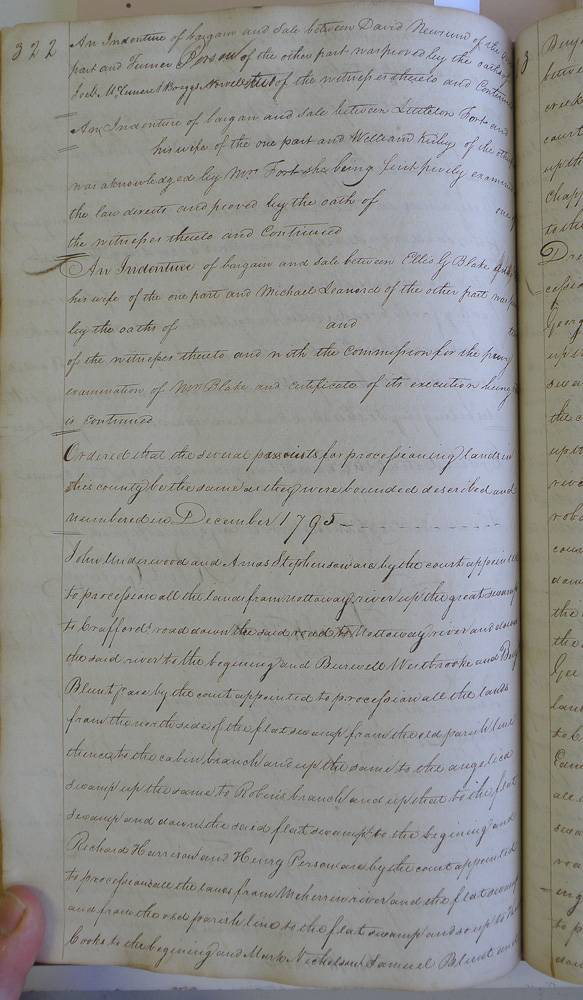 322
An Indenture of bargain and sale between David Newsum of the one
part and Turner Person of the other part was proved by the oaths of
Joel McLemore & Briggs of the witnesses thereto and Continued
An Indenture of bargain and sale between Littleton Fort and
his wife of the one part and William Kirby of the other
was aknowledged by Mr Fort she being first prively examined
the law directs and proved by the oath of one of
the witnesses thereto and Continued
An Indenture of bargain and sale between Ellis G Blake and
his wife of the one part and Michael Leanord of the other part was
by the oaths of and
of the witnesses thereto and with the commission for the privy
examination of Mrs Blake and certificate of its execution being
is continued
Ordered that the several presincts for processioning lands in
this county be the same as they were bounded described and
numbered in December 1795
John Underwood and Amos Stephenson are by the court appointed
to procession all the lands from nottoway river up the great swamp
to Craffords road down the said road to Nottoway river and down
the said river to the begining and Burwell Westbrooke and Benj
Blunt jr are by the court appointed to procession all the lands
from the north side of the flat swamp from the old parish line
thence to the cabin branch and up the same to the angelica
swamp up the same to Robins branch and up that to the flat
swamp and down the said flat swamp to the begining and
Richard Harrison and Henry Person are by the court appointed
to procession all the lands from Meherrin river and the flat swamp
and from the old parish line to the flat swamp and so up to
Cooks to the begining and Mark Nicholson Samuel Blunt and